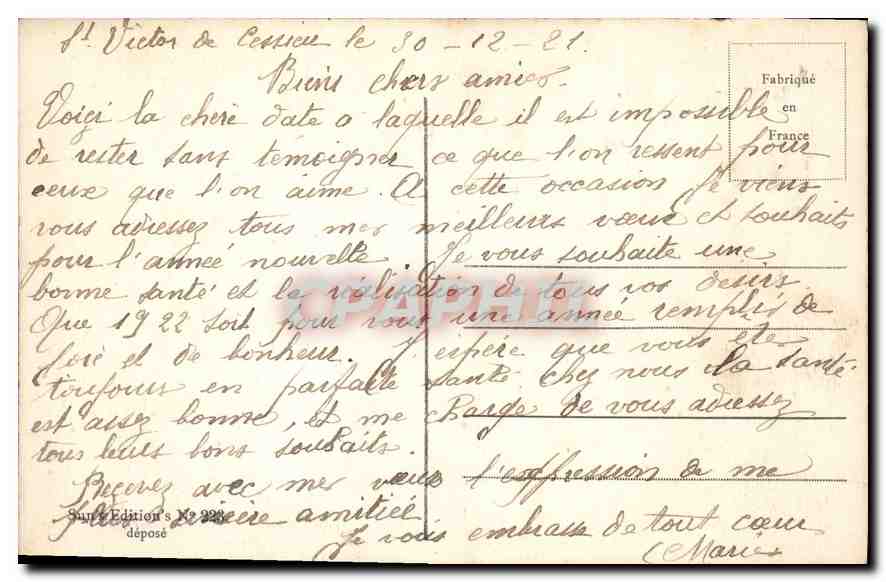 St Victor de Cessieu le 30-12-21.
Biens chers amies.
Voiçi la chère date a laquelle il est impossible
de rester sans témoigner ce que l'on ressent pour
ceux que l'on aime. A cette occasion Je viens
vous adressez tous mes meilleurs vœux et souhaits
pour l'année nouvelle. Je vous souhaite une
bonne santé et la réalisation de tous vos desirs.
Que 1922 soit pour vous une année remplis de
joie et de bonheur. J'espère que vous etes
toujours en parfaite santé. chez nous la santé
est assez bonne, et me charge de vous adressez
tous leurs bons souhaits.
Reçevez avec mes vœux l'expression de me
plus sincère amitiéé
Je vous embrasse de tout cœur
Marie
Fabriqué
en
France
Sun's Edition's No 223
déposé
CPAPHIL